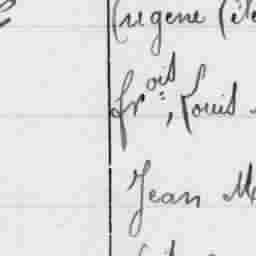 Eugene
frois, Louis
Jean M